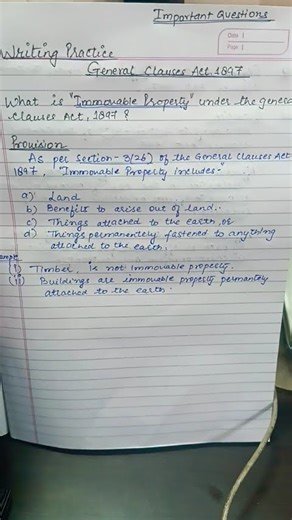 Important Questions
Date
Page
Writing Practice
General Clauses Act, 1897
What is "Immovable Property" under the general
clauses Act, 1897 ?
Provision
As per Section- 3(26) of the General Clauses Act
1897, "Immovable Property includes-
a) Land
b) Benefits to arise out of land.
c) Things attached to the earth, or
d) Things permanentely fastened to anything
attached to the earth.
(i) Timber, is not immovable property.
(ii) Buildings are immovable property permantely
attached to the earth.